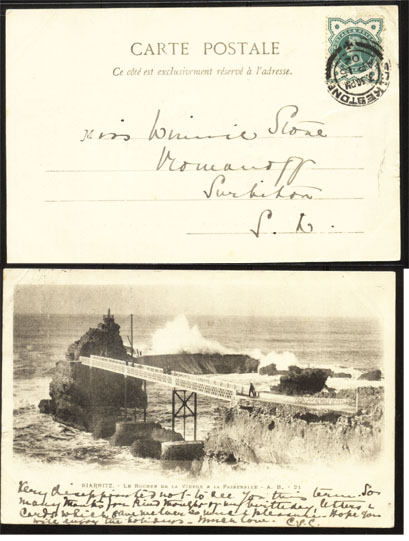 CARTE POSTALE
Ce côté est exclusivement réservé à l'adresse.
FOLKESTONE
Miss Winnie Stone
Romanoff
Surbiton
S. W.
BIARRITZ. - LE ROCHER DE LA VIERGE & LA PASSERELLE - A. B. - 21
Very disappointed not to see you this term. So
many thanks for kind thought of my birthday letters &
cards which gave me love much pleasure. Hope you
will enjoy the holidays. Much love. C.S.C.